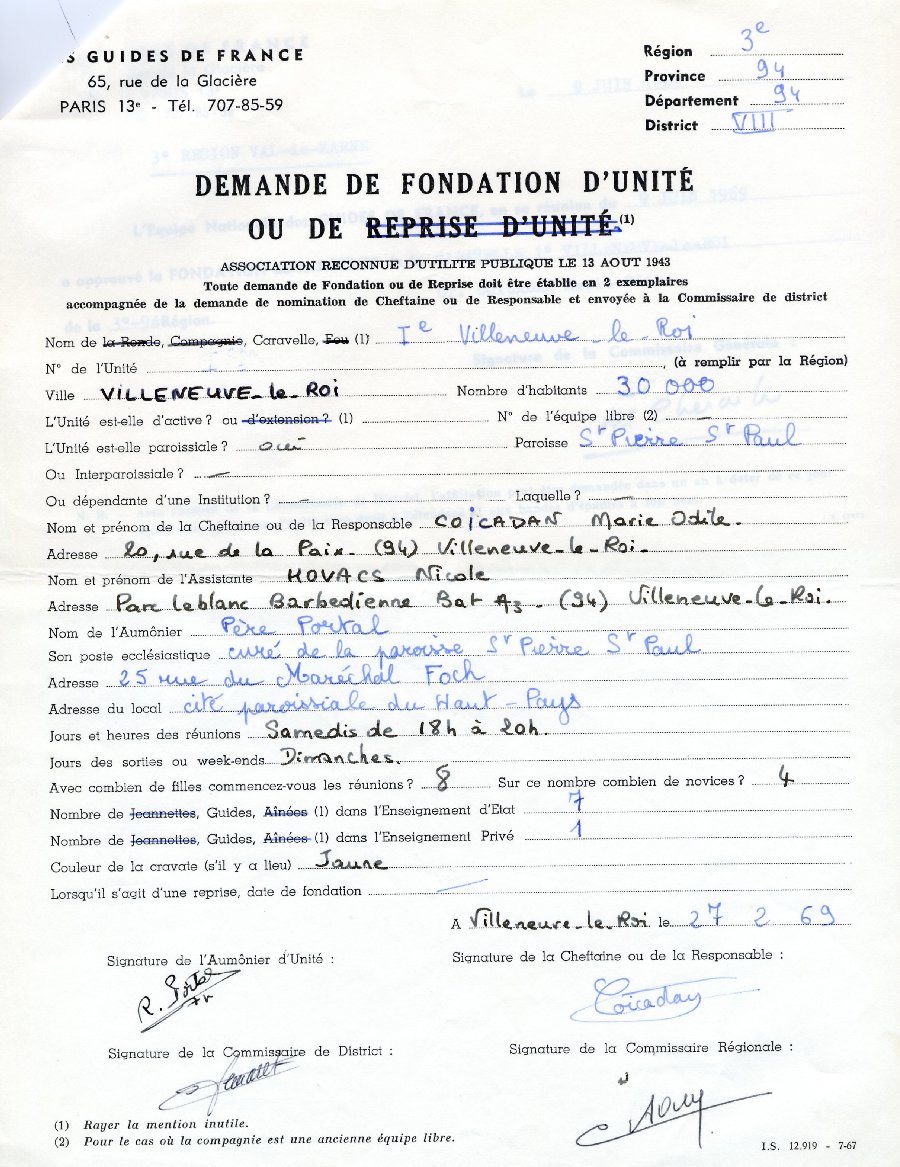 S GUIDES DE FRANCE
65, rue de la Glacière
PARIS 13e - Tél. 707-85-59
Région 3e
Province 94
Département 94
District VIII
DEMANDE DE FONDATION D'UNITÉ
OU DE REPRISE D'UNITÉ (1)
ASSOCIATION RECONNUE D'UTILITE PUBLIQUE LE 13 AOUT 1943
Toute demande de Fondation ou de Reprise doit être établie en 2 exemplaires
accompagnée de la demande de nomination de Cheftaine ou de Responsable et envoyée à la Commissaire de district
Nom de la Ronde, Compagnie, Caravelle, Feu (1) Ie Villeneuve-le-Roi
N° de l'Unité , (à remplir par la Région)
Ville VILLENEUVE-le-Roi Nombre d'habitants 30 000
L'Unité est-elle d'active ? ou d'extension ? (1) N° de l'équipe libre (2) —
L'Unité est-elle paroissiale ? oui Paroisse St Pierre St Paul
Ou Interparoissiale ? —
Ou dépendante d'une Institution ? — Laquelle ? —
Nom et prénom de la Cheftaine ou de la Responsable COÏCADAN Marie Odile.
Adresse 20, rue de la Paix. (94) Villeneuve-le-Roi.
Nom et prénom de l'Assistante KOVACS Nicole
Adresse Parc Leblanc Barbedienne Bat A3 - (94) Villeneuve-le-Roi.
Nom de l'Aumônier Père Portal
Son poste ecclésiastique curé de la paroisse St Pierre St Paul
Adresse 25 rue du Maréchal Foch
Adresse du local cité paroissiale du Haut-Pays
Jours et heures des réunions Samedis de 18h à 20h.
Jours des sorties ou week-ends Dimanches.
Avec combien de filles commencez-vous les réunions ? 8 Sur ce nombre combien de novices ? 4
Nombre de Jeannettes, Guides, Aînées (1) dans l'Enseignement d'Etat 7
Nombre de Jeannettes, Guides, Aînées (1) dans l'Enseignement Privé 1
Couleur de la cravate (s'il y a lieu) Jaune
Lorsqu'il s'agit d'une reprise, date de fondation —
A Villeneuve-le-Roi le 27 2 69
Signature de l'Aumônier d'Unité :
Signature de la Cheftaine ou de la Responsable :
R. Portal
Coïcadan
Signature de la Commissaire de District :
Signature de la Commissaire Régionale :
(1) Rayer la mention inutile.
(2) Pour le cas où la compagnie est une ancienne équipe libre.
I.S. 12.919 - 7-67